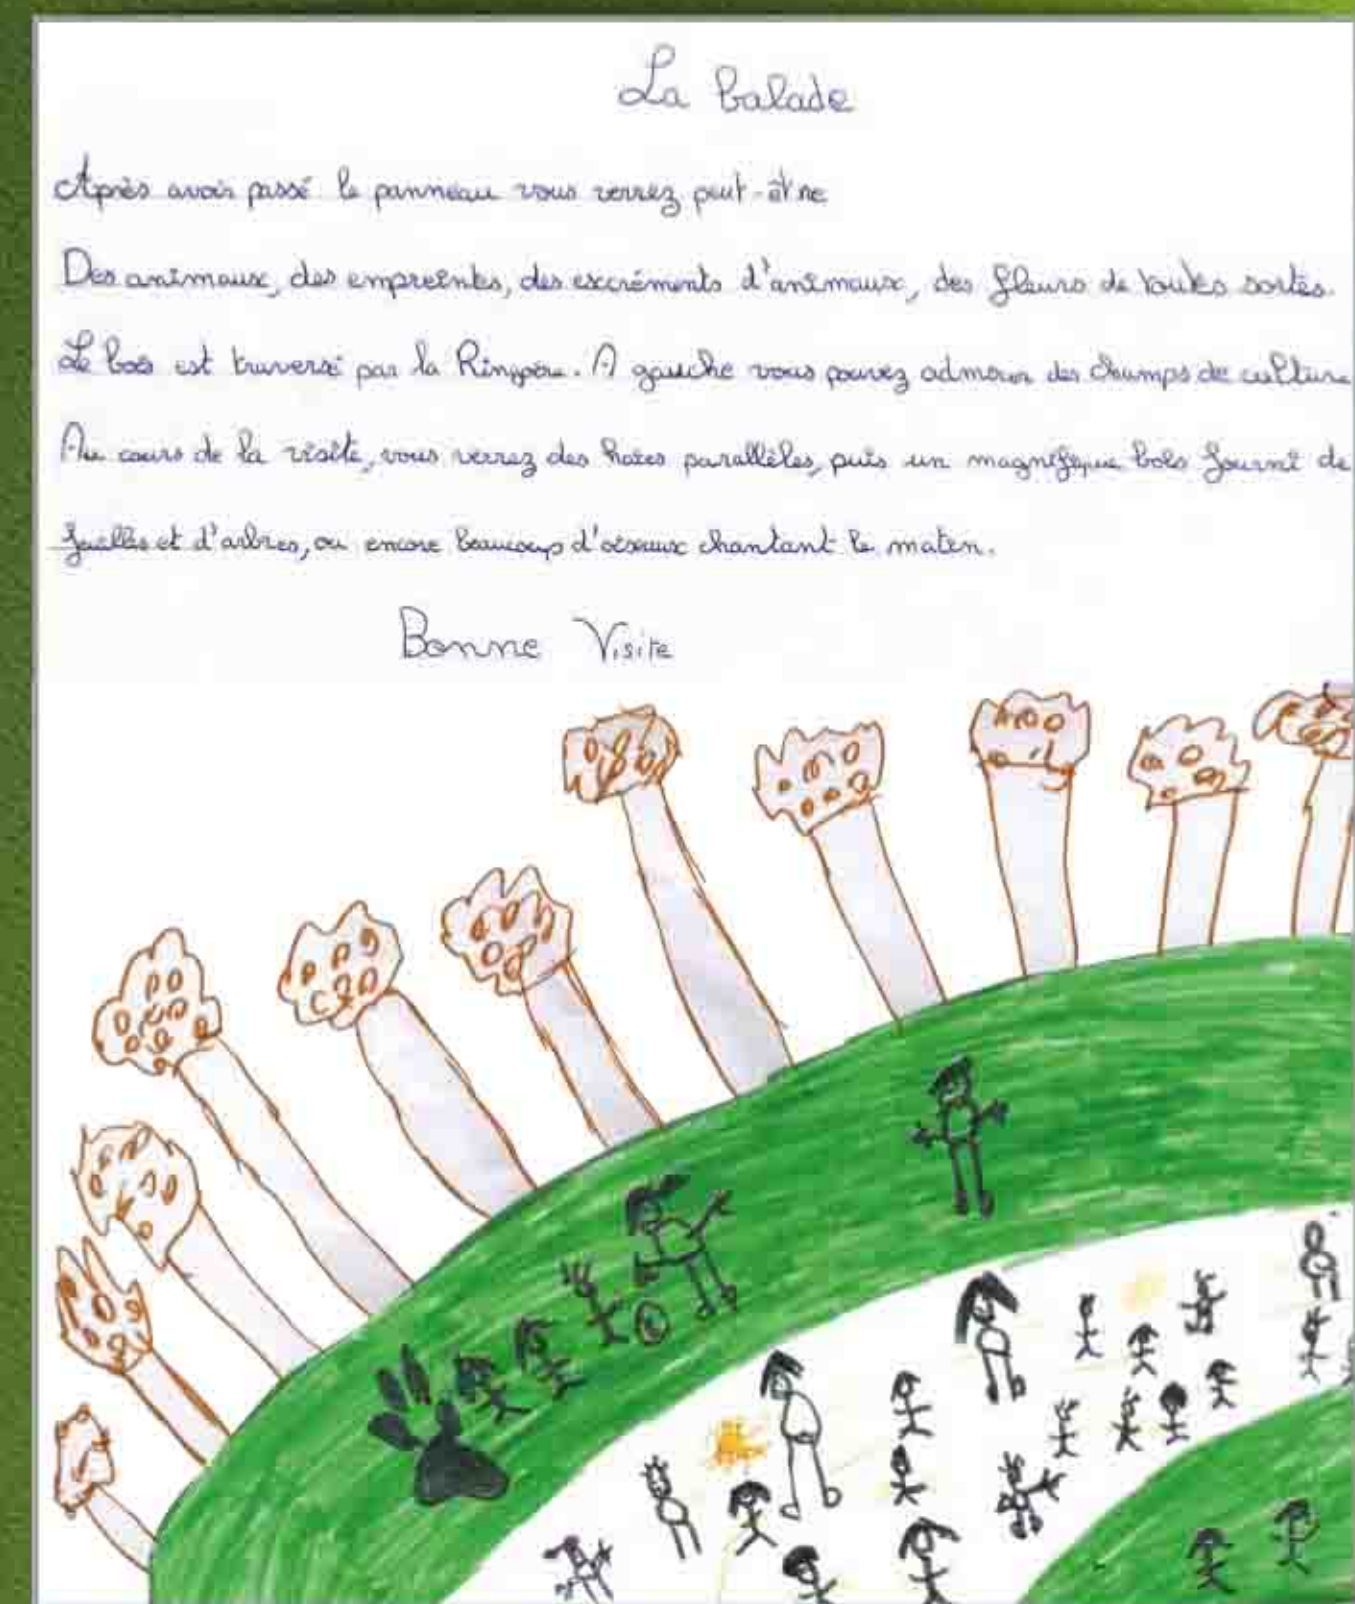 La balade
Après avoir passé le panneau vous verrez peut-être
Des animaux, des empreintes, des excréments d'animaux, des fleurs de toutes sortes.
Le bois est traversé par la . A gauche vous pouvez admirer des champs de culture
Au cours de la visite, vous verrez des haies parallèles, puis un magnifique bois fourni de
feuilles et d'arbres, ou encore beaucoup d'oiseaux chantant le matin.
Bonne Visite